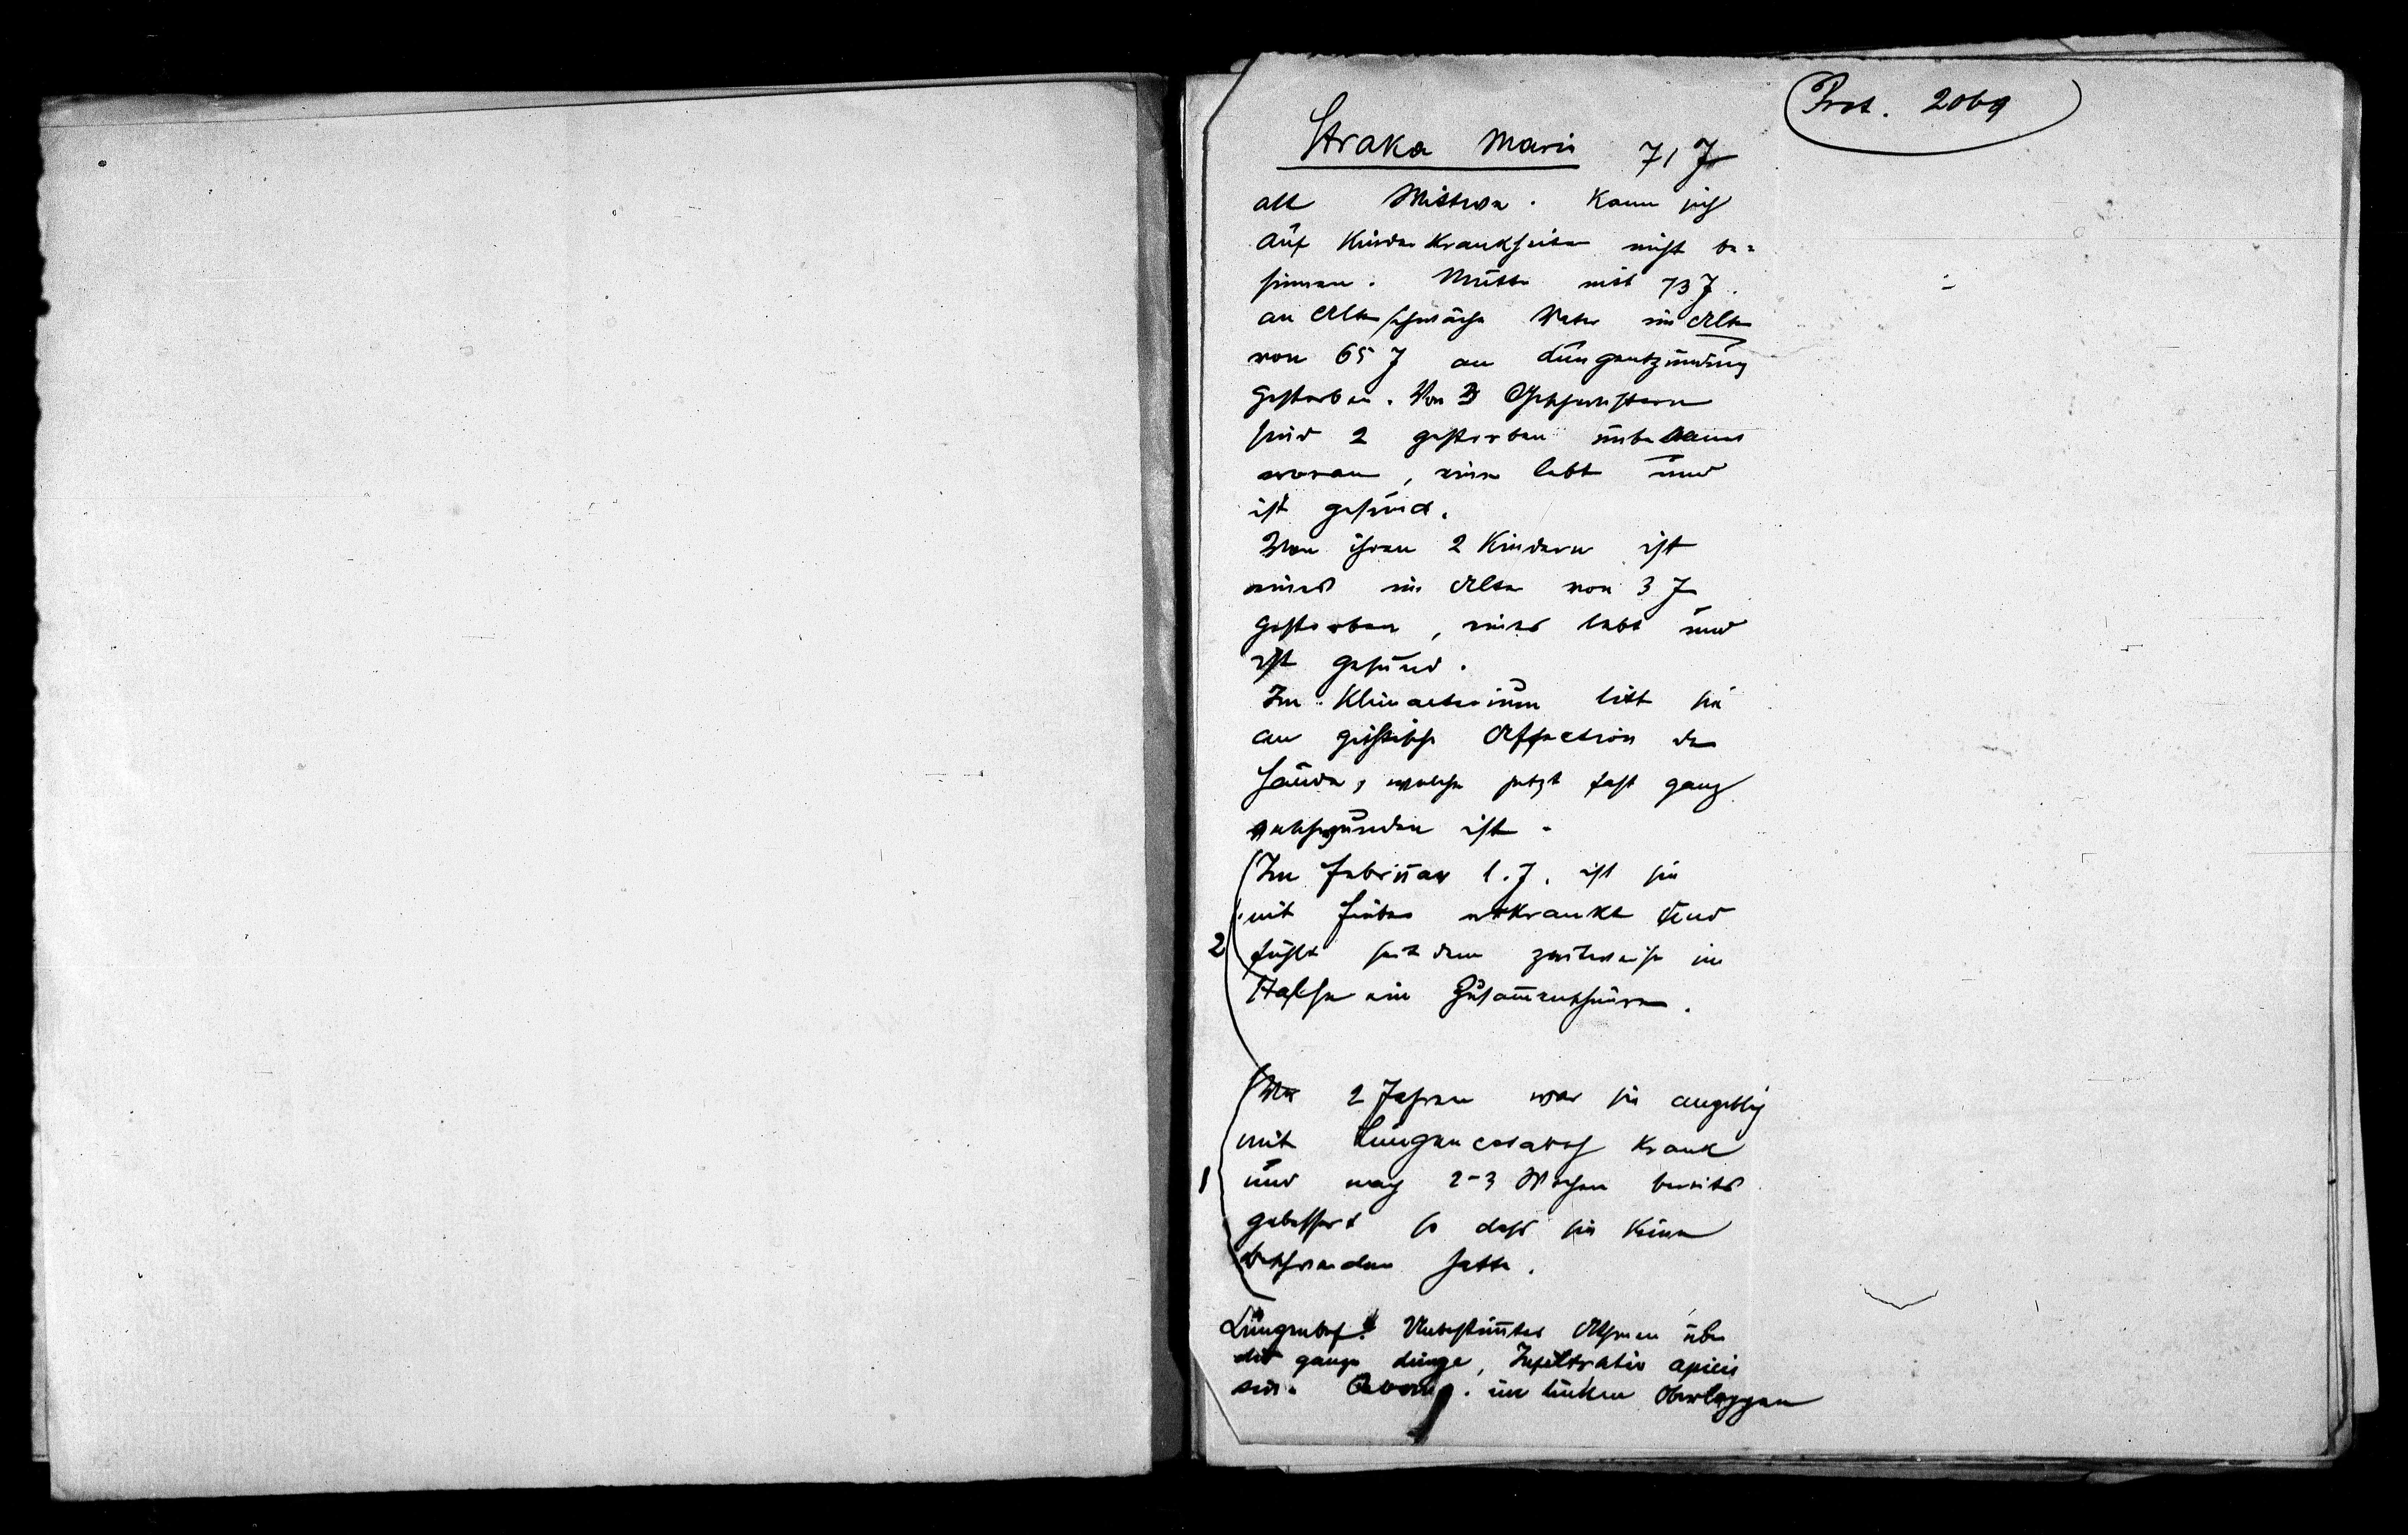 Prot. 2069
Straka Marie 71 J
alt Wittwe. Kann sich
auf Kinderkrankheiten nicht be-
sinnen. Mutter mit 73 J.
an Altersschwäche Vater im Alter
von 65 J an Lungentzündung
gestorben. Von 3 Geschwistern
sind 2 gestorben unbekannt
woran, eine lebt und
ist gesund.
Von ihren 2 Kindern ist
eines im Alter von 3 J
gestorben, eines lebt und
ist gesund.
Im Klimacterium litt sie
an gichtische Affection der
Hände, welche jetzt fast ganz
verschwunden ist.
Im Februar l. J. ist sie
mit Fieber erkrankt und
2 fühlt seitdem zeitweise im
Halse ein Zusammenschnüren.
Vor 2 Jahren war sie angeblich
mit Lungencatarrh krank
1 und nach 2-3 Wochen bereits
gebessert so dass sie keine
Beschwerden hatte.
Lungenbef. Unbestimmtes Athmen über
die ganze Lunge, Infiltratio apicis
sin. im linken Oberlappen